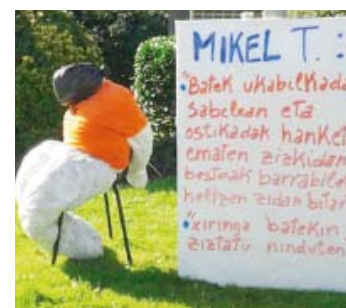 MIKEL T. :
"Batek ukabilkada
sabelean eta
ostikadak hanket
ematen zizkidan
bestoak barrabile
heltzen zidan bitar
"xiringa batekin
ziztatu ninduten